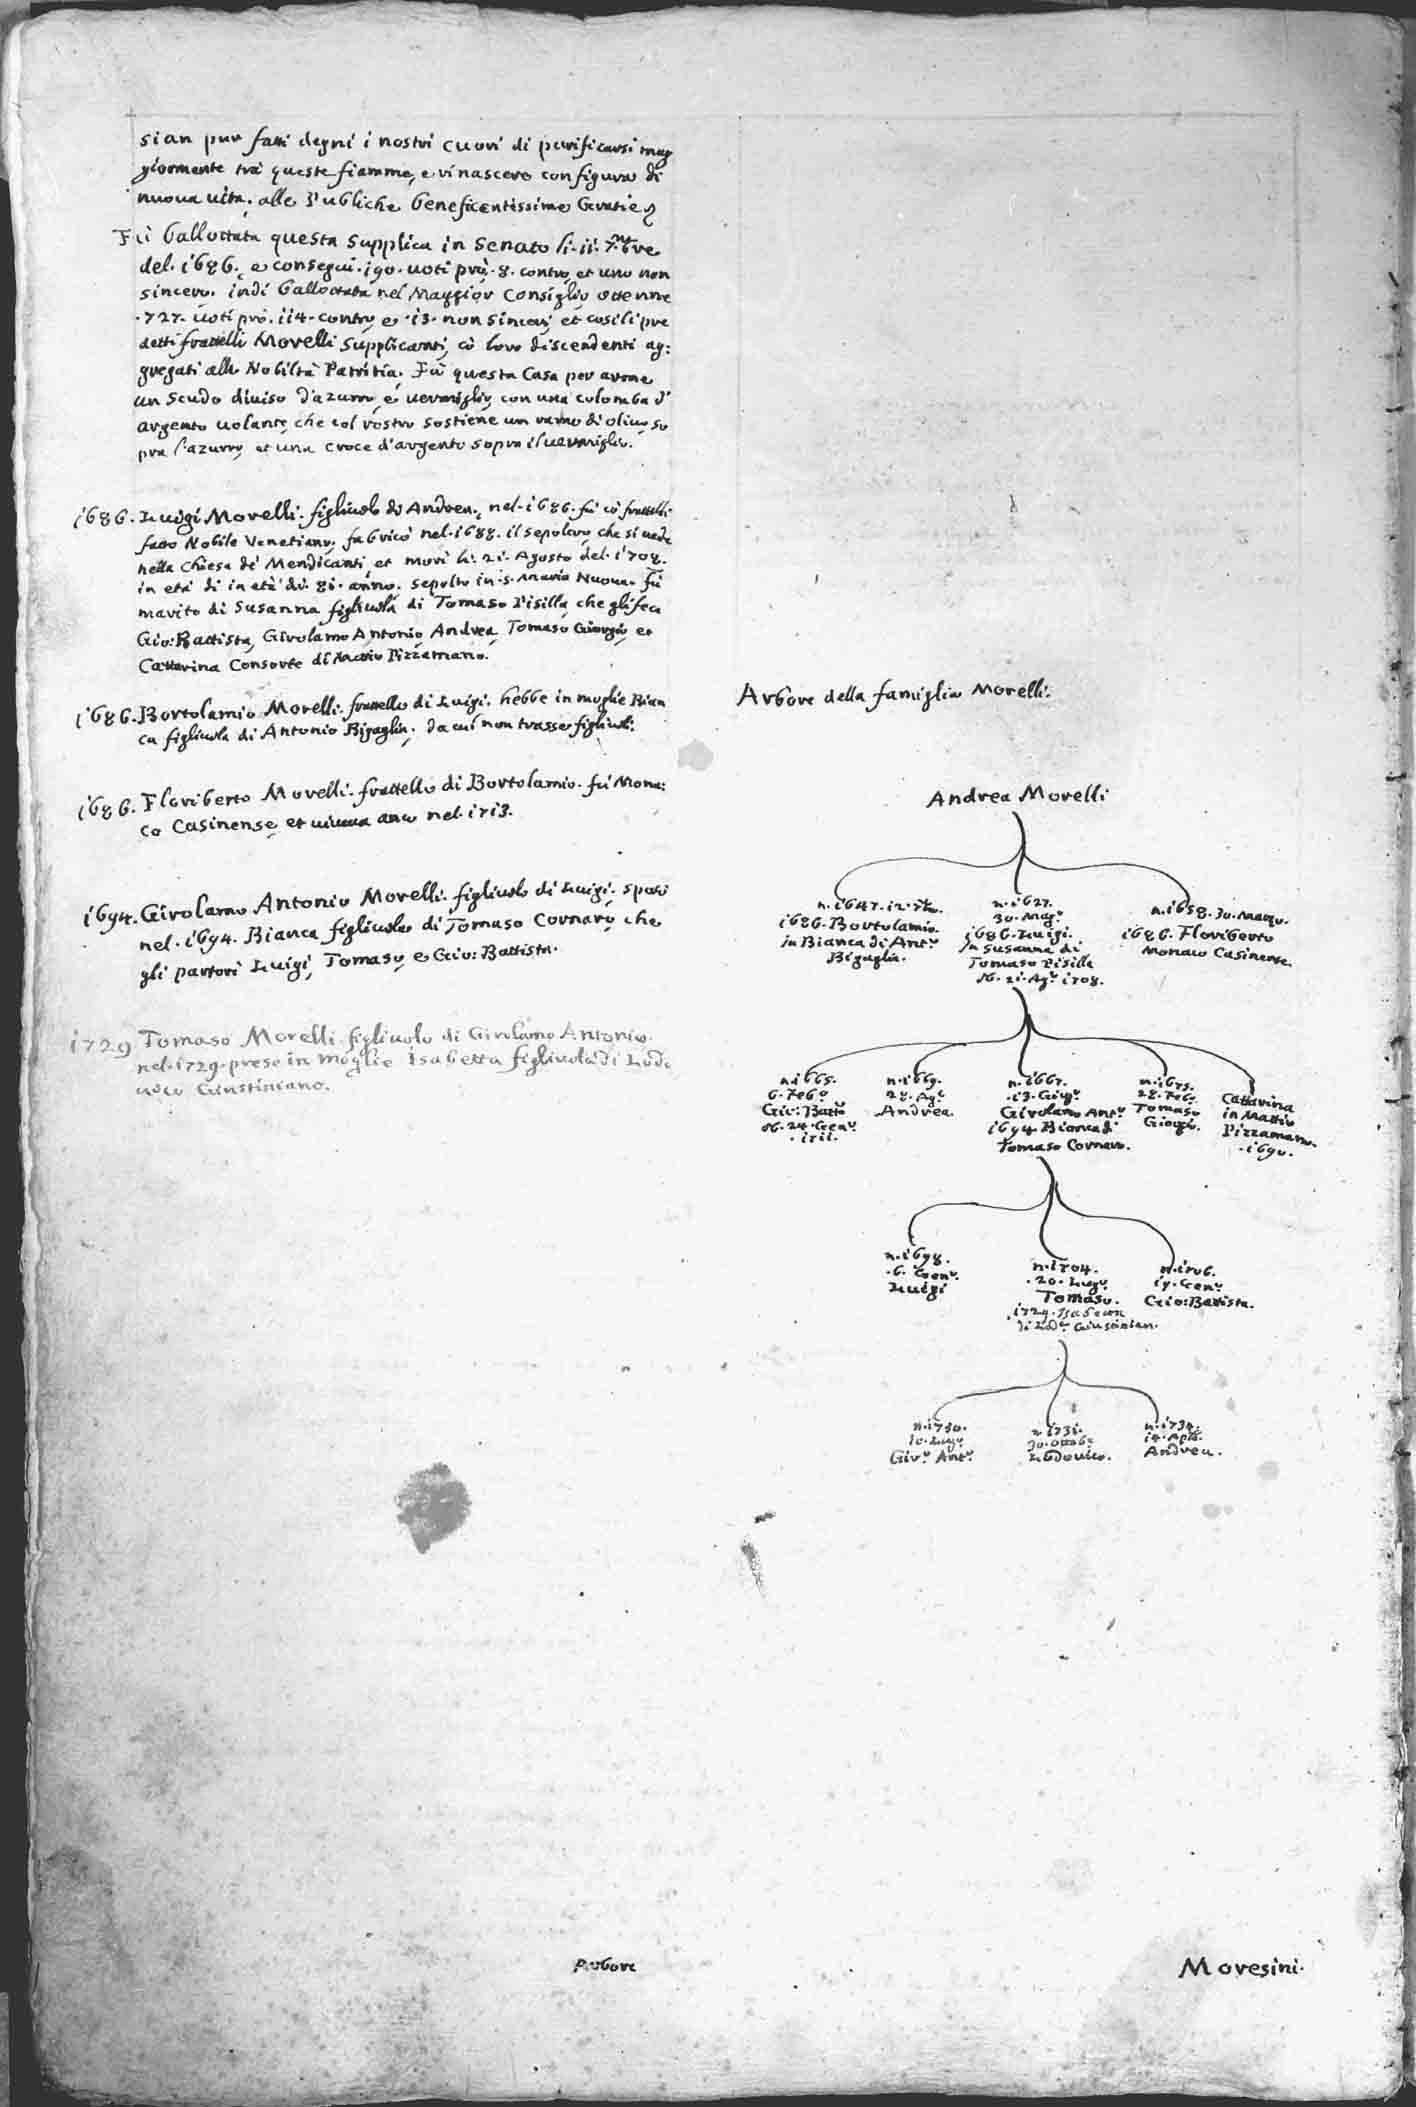 sian pur fatti degni i nostri cuori di purificarsi mag
giormente trà queste fiamme, e rinascere con figura di
nuova vita, alle Publiche beneficentissime Gratie
Fù ballottata questa supplica in Senato li. ii. 7.bre
del. i686. e conseguì. i90. voti prò. 8. contro, et uno non
sincero. indi ballottata nel Maggior Consiglio ottenne
.727. voti prò. ii4. contro, e .i3. non sinceri, et cosi li pre
detti fratelli Morelli supplicanti, cò loro discendenti ag:
gregati alla Nobiltà Patritia. Fà questa Casa per arme
un scudo diviso d'azurro, e vermiglio, con una colomba d'
argento volante, che col rostro sostiene un ramo di olivo, so
pra l'azurro, et una croce d'argento sopra il vermiglio.
i686. Luigi Morelli. figliuolo di Andrea, nel. i686. fù cò fratelli
fatto Nobile Venetiano. fabricò nel. i688. il sepolcro, che si vede
nella Chiesa de' Mendicanti, et morì li. 2i. Agosto del. i708.
in età di in età di. 8i. anno. sepolto in. S. Maria Nuova. Fù
marito di Susanna figliuola di Tomaso Pisilla, che gli fece
Gio: Battista, Girolamo Antonio, Andrea, Tomaso Giorgio, et
Cattarina Consorte di Mattio Pizzamano.
i686. Bortolamio Morelli. fratello di Luigi. hebbe in moglie Bian
ca figliuola di Antonio Bigaglia. da cui non trasse figliuoli.
i686. Floriberto Morelli. fratello di Bortolamio. fù Mona:
co Casinense, et viveva anco nel. i7i3.
i694. Girolamo Antonio Morelli. figliuolo di Luigi. sposò
nel. i694. Bianca figliuola di Tomaso Cornaro, che
gli partorì Luigi, Tomaso, e Gio: Battista.
i729 Tomaso Morelli figliuolo di Girolamo Antonio.
nel. i729. prese in moglie Isabetta figliuola di Lodo
vico Giustiniano.
Arbore
Arbore della famiglia Morelli.
Andrea Morelli
n. i647. i2.
i686. Bortolamio.
in Bianca di Ant.o
Bigaglia.
n. i627.
30. Mag.o
i686. Luigi.
in Susanna di
Tomaso Pisilla
ob. 2i. Ag.o i708.
n. i658. 30. Marzo.
i686. Floriberto
Monaco Casinense.
n. i665.
6. Feb.o
Gio: Batta
ob. 24. Gen.o
. i7ii.
n. i669.
28. Ag.o
Andrea.
n. i667.
. i3. Giug.o
Girolamo Ant.o
i694. Bianca di
Tomaso Cornaro.
n. i675.
28. Feb.o
Tomaso
Giorgio.
Cattarina
in Mattio
Pizzamano.
. i690.
n. i698.
. 6. Gen.o
Luigi
n. i704.
. 20. Lug.o
Tomaso.
. i729. Isabetta
di Lod.o Giustinian.
n. i706.
i9. Gen.o
Gio: Battista.
n. i730.
i0. Lug.o
Gir.o Ant.o
n. i73i.
30. Ottob.e
Lodovico.
n. i734.
i4. Aple.
Andrea.
Moresini.